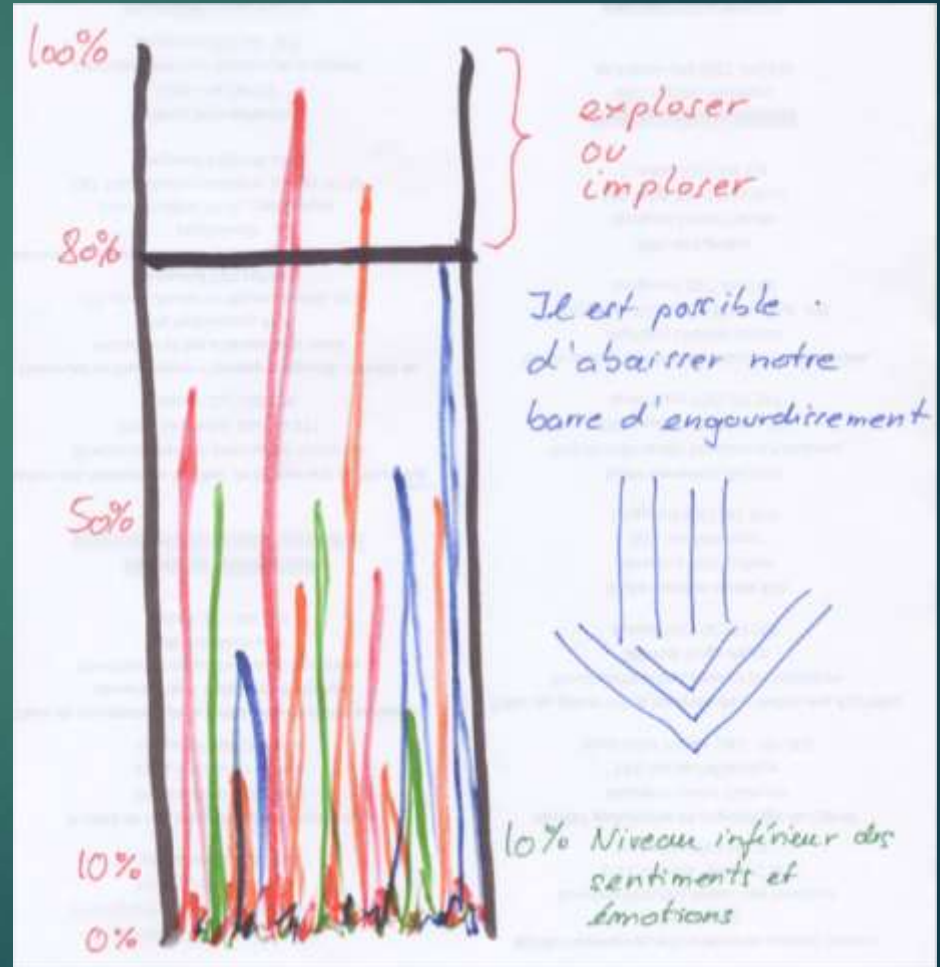 100%
exploser
ou
imploser
80%
Il est possible
d'abaisser notre
barre d'engourdissement
50%
10%
10% Niveau inférieur des
sentiments et
émotions
0%